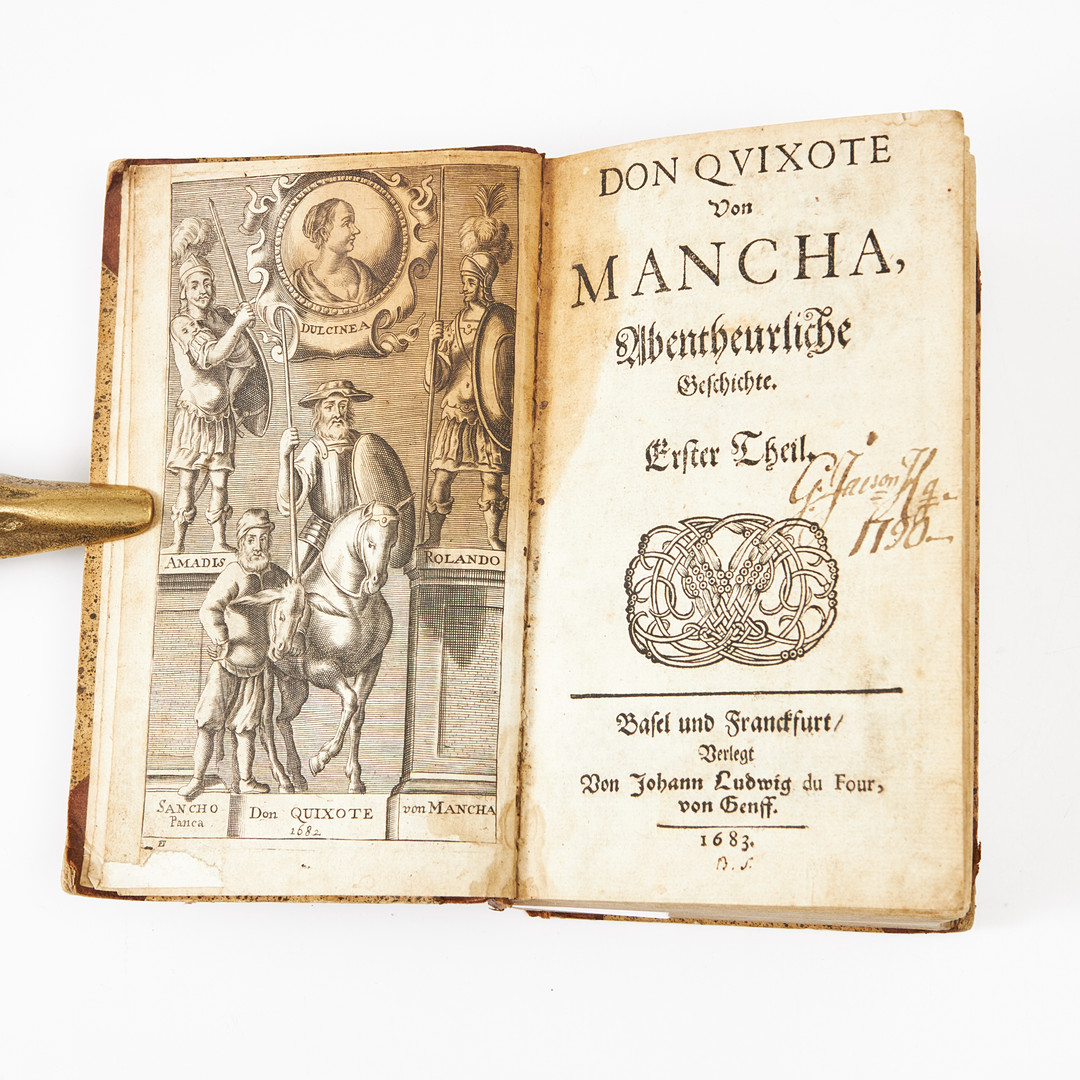 DULCINEA
AMADIS
ROLANDO
SANCHO
Panca
Don QUIXOTE
1682
von MANCHA
DON QVIXOTE
Von
MANCHA,
Abentheurliche
Geschichte.
Erster Theil.
1790.
Basel und Franckfurt/
Verlegt
Von Johann Ludwig du Four,
von Genff.
1683.